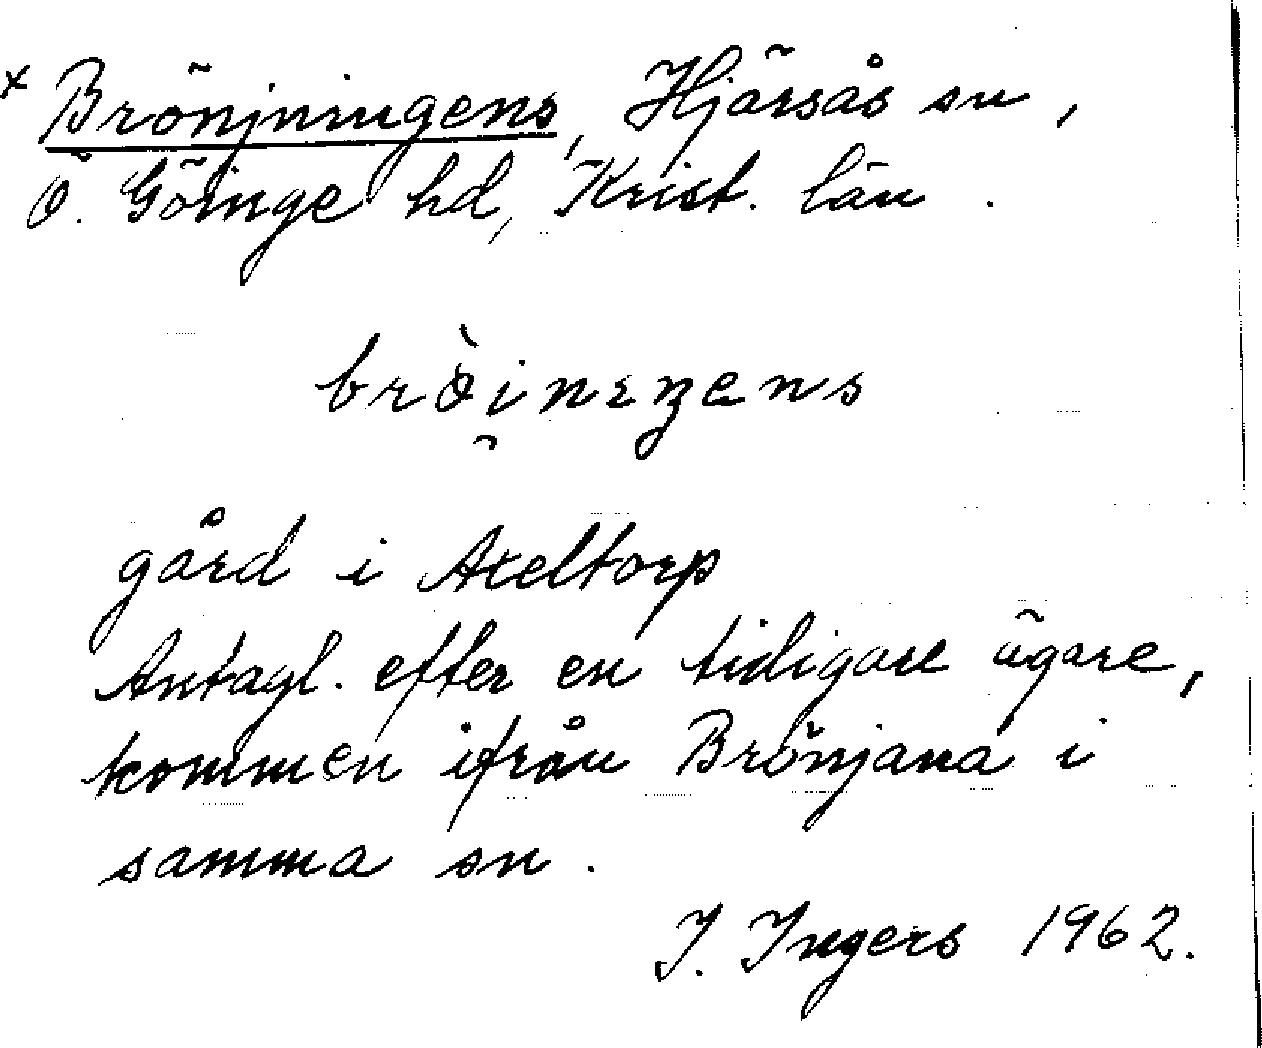 x Brönjningens, Hjärsås sn,
Ö. Göinge hd, Krist. län.
gård i Axeltorp
Antagl. efter en tidigare ägare,
kommen ifrån Brönjana i
samma sn.
I. Ingers 1962.